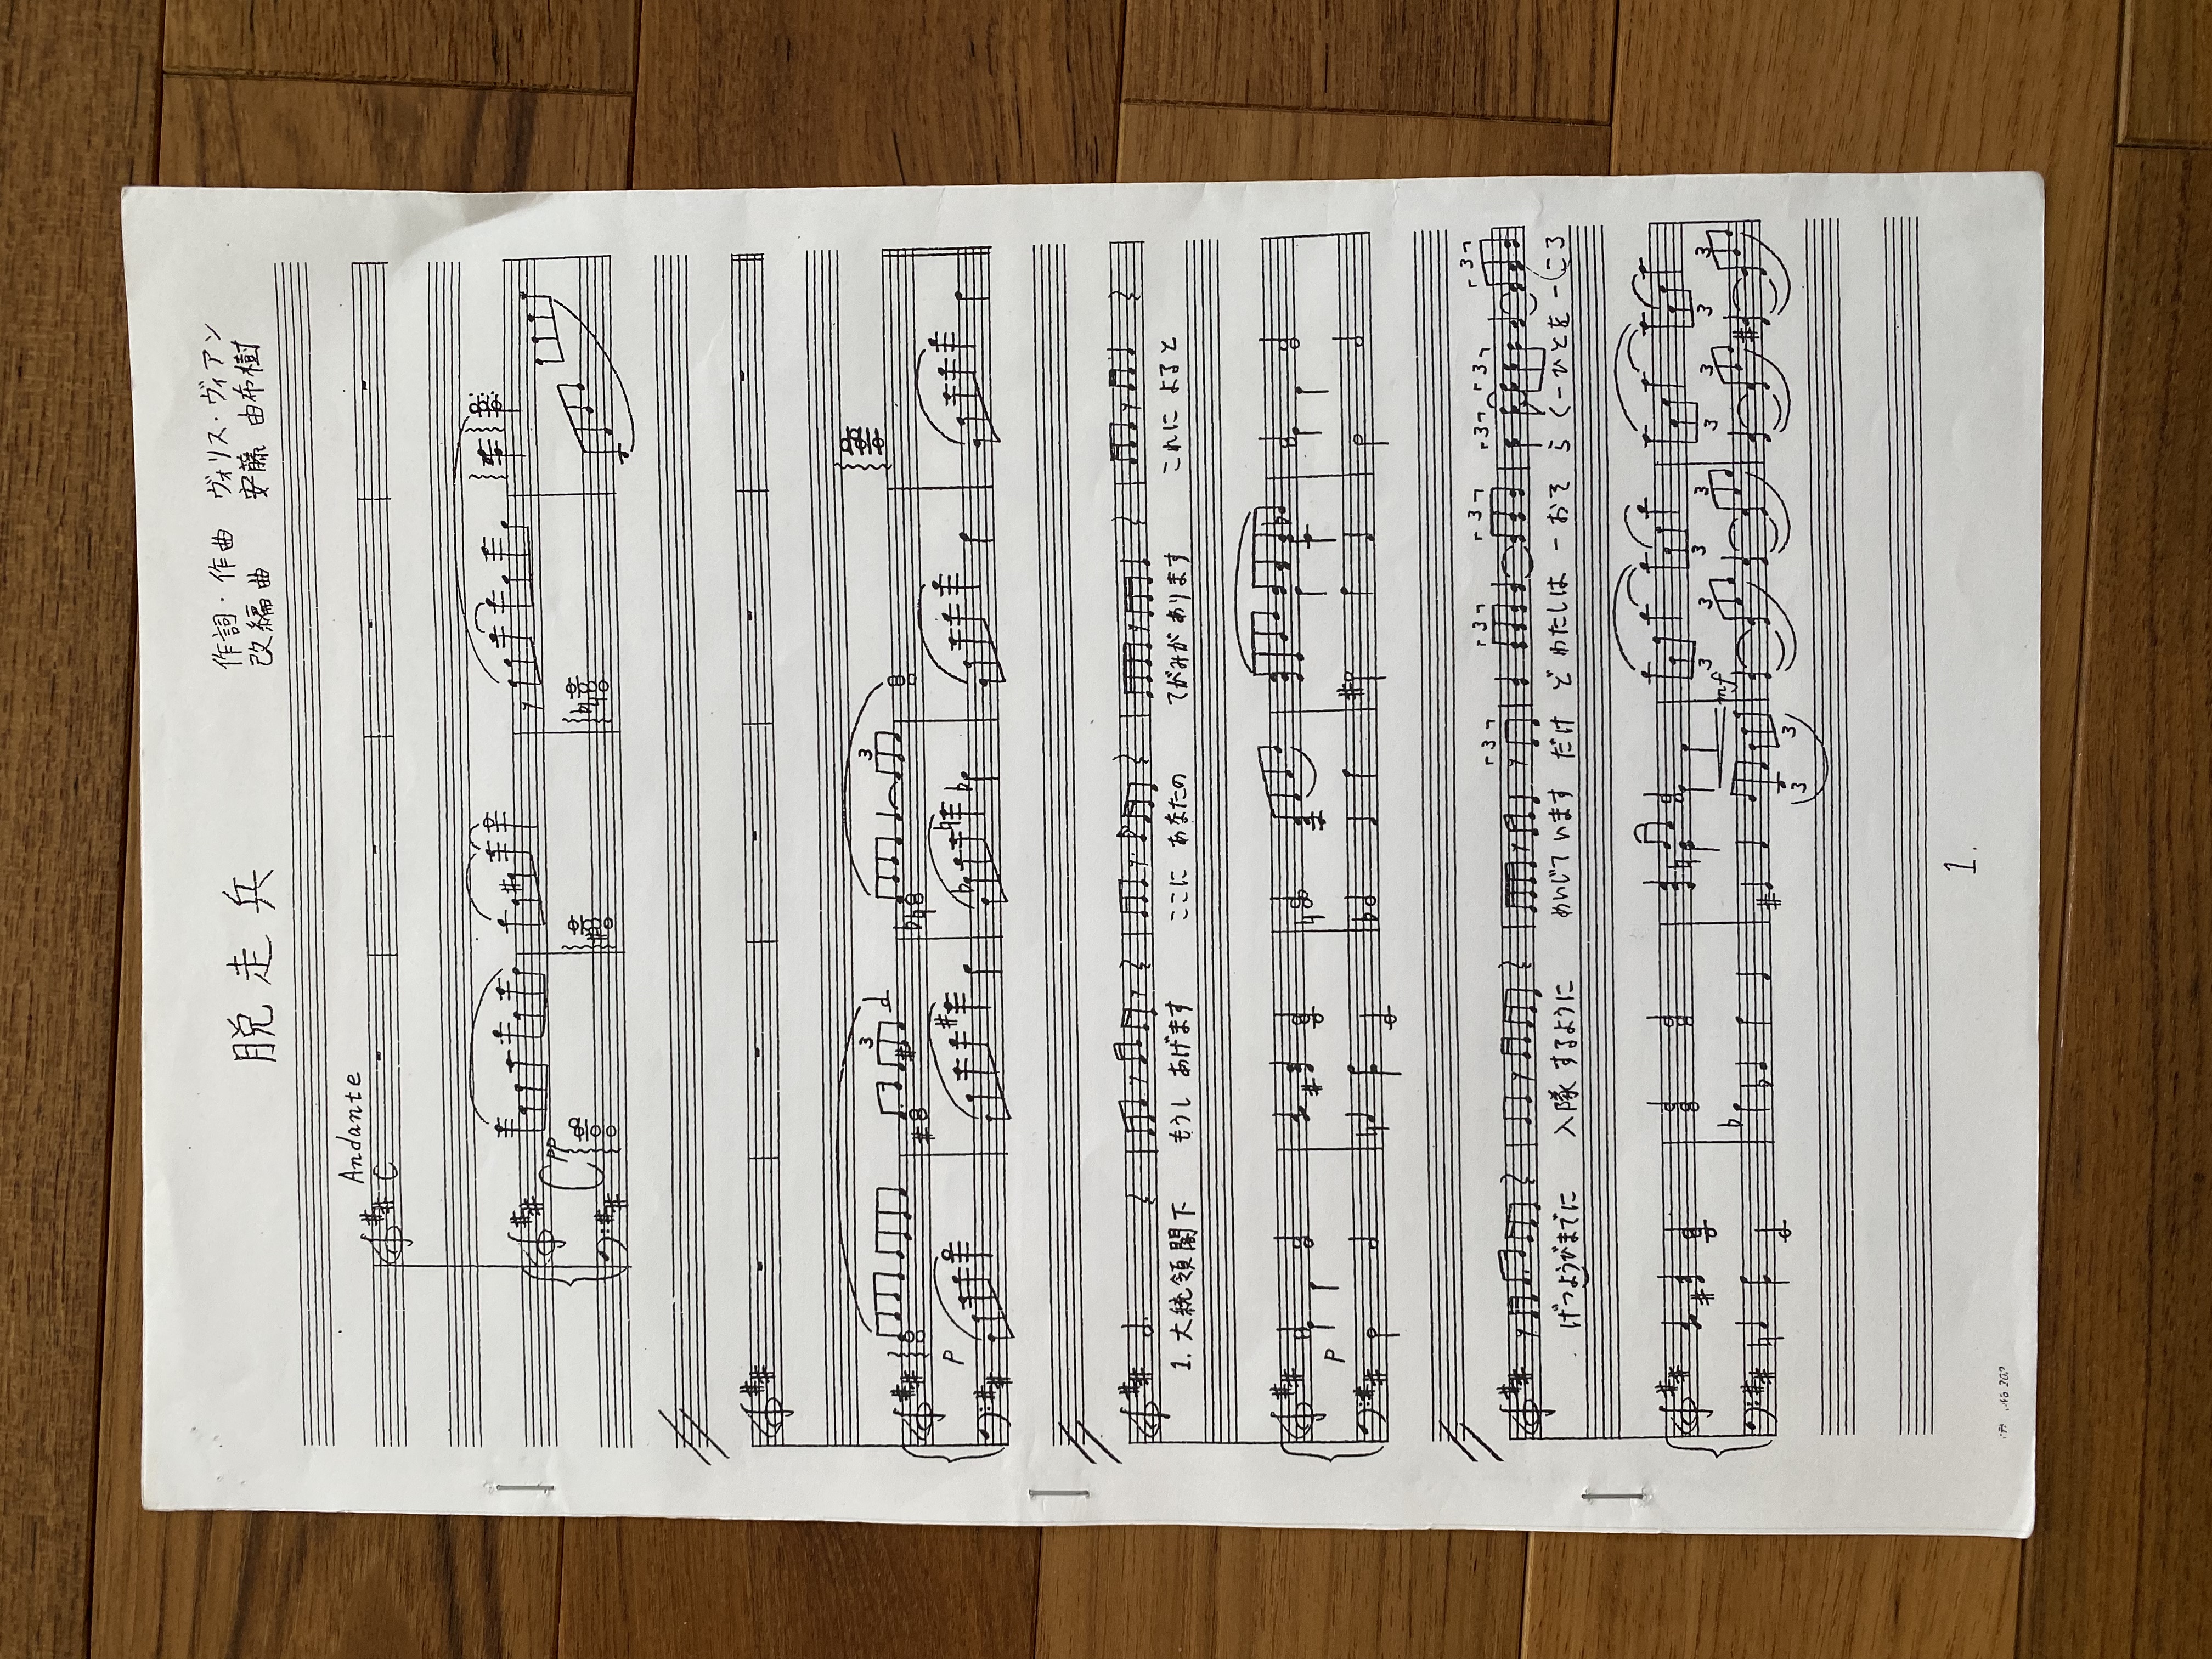 脱走兵
作詞・作曲 ヴォリス・ヴィアン
改編曲 安藤 由布樹
Andante
C
PP
3 3
P
1. 大統領閣下 もうし あげます ここに あなたの てがみが あります これに よると
P
3 3 3 3 3 3
げつようびまでに 入隊 するように めいじて います だけ どわたしは ー おそ らくーひとをーころ
3 3 3 3 3
mf
3 3 3 3 3 3
1.